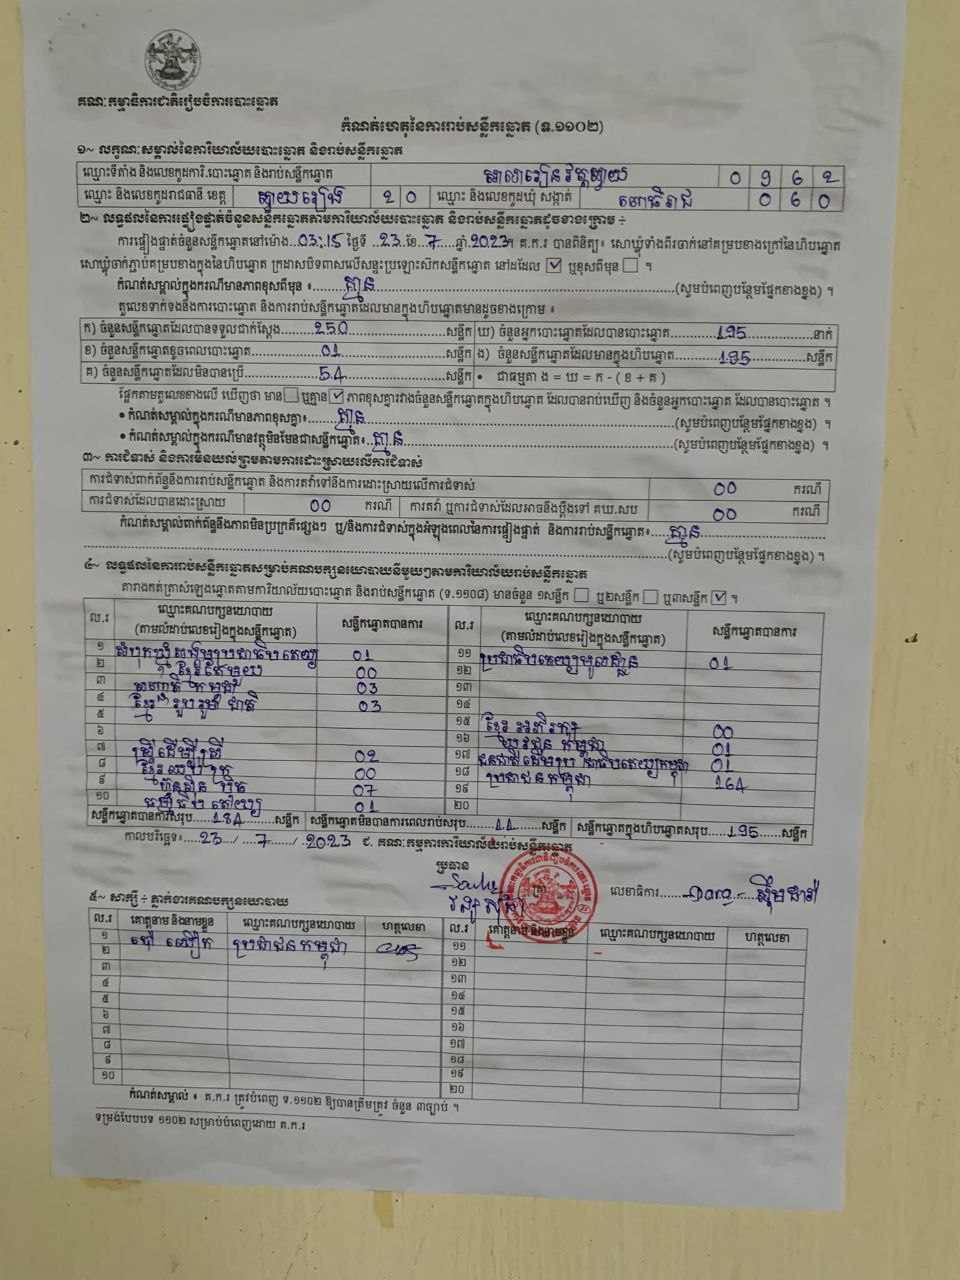 គណៈកម្មាធិការជាតិរៀបចំការបោះឆ្នោត
កំណត់ហេតុនៃការរាប់សន្លឹកឆ្នោត (ទ.១១០២)
១~ លក្ខណៈសម្គាល់នៃការិយាល័យបោះឆ្នោត និងរាប់សន្លឹកឆ្នោត
ឈ្មោះទីតាំង និងលេខកូដការិ.បោះឆ្នោត និងរាប់សន្លឹកឆ្នោត សាលារៀនវត្តស្វាយ 0962
ឈ្មោះ និងលេខកូដរាជធានី ខេត្ត ស្វាយរៀង 20 ឈ្មោះ និងលេខកូដឃុំ សង្កាត់ ពោធិរាជ 060
២~ លទ្ធផលនៃការផ្ទៀងផ្ទាត់ចំនួនសន្លឹកឆ្នោតតាមការិយាល័យបោះឆ្នោត និងរាប់សន្លឹកឆ្នោតដូចខាងក្រោម ÷
ការផ្ទៀងផ្ទាត់ចំនួនសន្លឹកឆ្នោតនៅម៉ោង..03:15 ថ្ងៃទី ..23..ខែ..7....ឆ្នាំ.2023។ គ.ក.រ បានពិនិត្យ៖ សោឃ្លុំទាំងពីរចាក់នៅគម្របខាងក្រៅនៃហិបឆ្នោត
សោឃ្លុំចាក់ភ្ជាប់គម្របខាងក្នុងនៃហិបឆ្នោត ក្រដាសបិទពាសលើសន្ទះប្រឡោះសិកសន្លឹកឆ្នោត នៅដដែល ☑ ឬខុសពីមុន ☐ ។
កំណត់សម្គាល់ក្នុងករណីមានភាពខុសពីមុន ៖ គ្មាន (សូមបំពេញបន្ថែមផ្នែកខាងខ្នង) ។
តួលេខទាក់ទងនឹងការបោះឆ្នោត និងការរាប់សន្លឹកឆ្នោតដែលមានក្នុងហិបឆ្នោតមានដូចខាងក្រោម ៖
ក) ចំនួនសន្លឹកឆ្នោតដែលបានទទួលជាក់ស្តែង 250 សន្លឹក ឃ) ចំនួនអ្នកបោះឆ្នោតដែលបានបោះឆ្នោត 195 នាក់
ខ) ចំនួនសន្លឹកឆ្នោតខូចពេលបោះឆ្នោត 01 សន្លឹក ង) ចំនួនសន្លឹកឆ្នោតដែលមានក្នុងហិបឆ្នោត 195 សន្លឹក
គ) ចំនួនសន្លឹកឆ្នោតដែលមិនបានប្រើ 54 សន្លឹក • ជាធម្មតា ង = ឃ = ក - ( ខ + គ )
ផ្អែកតាមតួលេខខាងលើ ឃើញថា មាន ☐ ឬគ្មាន ☑ ភាពខុសគ្នារវាងចំនួនសន្លឹកឆ្នោតក្នុងហិបឆ្នោត ដែលបានរាប់ឃើញ និងចំនួនអ្នកបោះឆ្នោត ដែលបានបោះឆ្នោត ។
• កំណត់សម្គាល់ក្នុងករណីមានភាពខុសគ្នា៖ គ្មាន (សូមបំពេញបន្ថែមផ្នែកខាងខ្នង) ។
• កំណត់សម្គាល់ក្នុងករណីមានវត្ថុមិនមែនជាសន្លឹកឆ្នោត៖ គ្មាន (សូមបំពេញបន្ថែមផ្នែកខាងខ្នង) ។
៣~ ការជំទាស់ និងការមិនយល់ព្រមតាមការដោះស្រាយលើការជំទាស់
ការជំទាស់ពាក់ព័ន្ធនឹងការរាប់សន្លឹកឆ្នោត និងការតវ៉ាទៅនឹងការដោះស្រាយលើការជំទាស់ 00 ករណី
ការជំទាស់ដែលបានដោះស្រាយ 00 ករណី ការតវ៉ា ឬការជំទាស់ដែលអាចនឹងប្តឹងទៅ គឃ.សប 00 ករណី
កំណត់សម្គាល់ពាក់ព័ន្ធនឹងភាពមិនប្រក្រតីផ្សេងៗ ឬ/និងការជំទាស់ក្នុងអំឡុងពេលនៃការផ្ទៀងផ្ទាត់ និងការរាប់សន្លឹកឆ្នោត៖ គ្មាន
(សូមបំពេញបន្ថែមផ្នែកខាងខ្នង) ។
៤~ លទ្ធផលនៃការរាប់សន្លឹកឆ្នោតសម្រាប់គណបក្សនយោបាយនីមួយៗតាមការិយាល័យរាប់សន្លឹកឆ្នោត
តារាងកត់ត្រាសំឡេងឆ្នោតតាមការិយាល័យបោះឆ្នោត និងរាប់សន្លឹកឆ្នោត (ទ.១១០៨) មានចំនួន ១សន្លឹក ☐ ឬ២សន្លឹក ☐ ឬ៣សន្លឹក ☑ ។
ល.រ ឈ្មោះគណបក្សនយោបាយ (តាមលំដាប់លេខរៀងក្នុងសន្លឹកឆ្នោត) សន្លឹកឆ្នោតបានការ ល.រ ឈ្មោះគណបក្សនយោបាយ (តាមលំដាប់លេខរៀងក្នុងសន្លឹកឆ្នោត) សន្លឹកឆ្នោតបានការ
១ សំបុកឃ្មុំសង្គមប្រជាធិបតេយ្យ 01 ១១ ប្រជាធិបតេយ្យមូលដ្ឋាន 01
២ ខ្មែរតែមួយ 00 ១២
៣ កម្ពុជា 03 ១៣
៤ ខ្មែររួបរួមជាតិ 03 ១៤
៥ ១៥ ខ្មែរអភិរក្ស 00
៦ ១៦ យុវជនកម្ពុជា 01
៧ ស្ត្រីដើម្បីស្ត្រី 02 ១៧ ជនជាតិដើមប្រជាធិបតេយ្យកម្ពុជា 01
៨ 00 ១៨ ប្រជាជនកម្ពុជា 164
៩ ហ៊្វុនស៊ិនប៉ិច 07 ១៩
១០ ធម្មាធិបតេយ្យ 01 ២០
សន្លឹកឆ្នោតបានការសរុប 184 សន្លឹក សន្លឹកឆ្នោតមិនបានការពេលរាប់សរុប 11 សន្លឹក សន្លឹកឆ្នោតក្នុងហិបឆ្នោតសរុប 195 សន្លឹក
កាលបរិច្ឆេទ៖ 23 / 7 / 2023 ជ. គណៈកម្មការការិយាល័យរាប់សន្លឹកឆ្នោត
ប្រធាន
លេខាធិការ Dara
៥~ សាក្សី ÷ ភ្នាក់ងារគណបក្សនយោបាយ
ល.រ គោត្តនាម និងនាមខ្លួន ឈ្មោះគណបក្សនយោបាយ ហត្ថលេខា ល.រ គោត្តនាម និងនាមខ្លួន ឈ្មោះគណបក្សនយោបាយ ហត្ថលេខា
១ ប្រជាជនកម្ពុជា ១១
២ ១២
៣ ១៣
៤ ១៤
៥ ១៥
៦ ១៦
៧ ១៧
៨ ១៨
៩ ១៩
១០ ២០
កំណត់សម្គាល់ ៖ គ.ក.រ ត្រូវបំពេញ ទ.១១០២ ឱ្យបានត្រឹមត្រូវ ចំនួន ៣ច្បាប់ ។
ទម្រង់បែបបទ ១១០២ សម្រាប់បំពេញដោយ គ.ក.រ